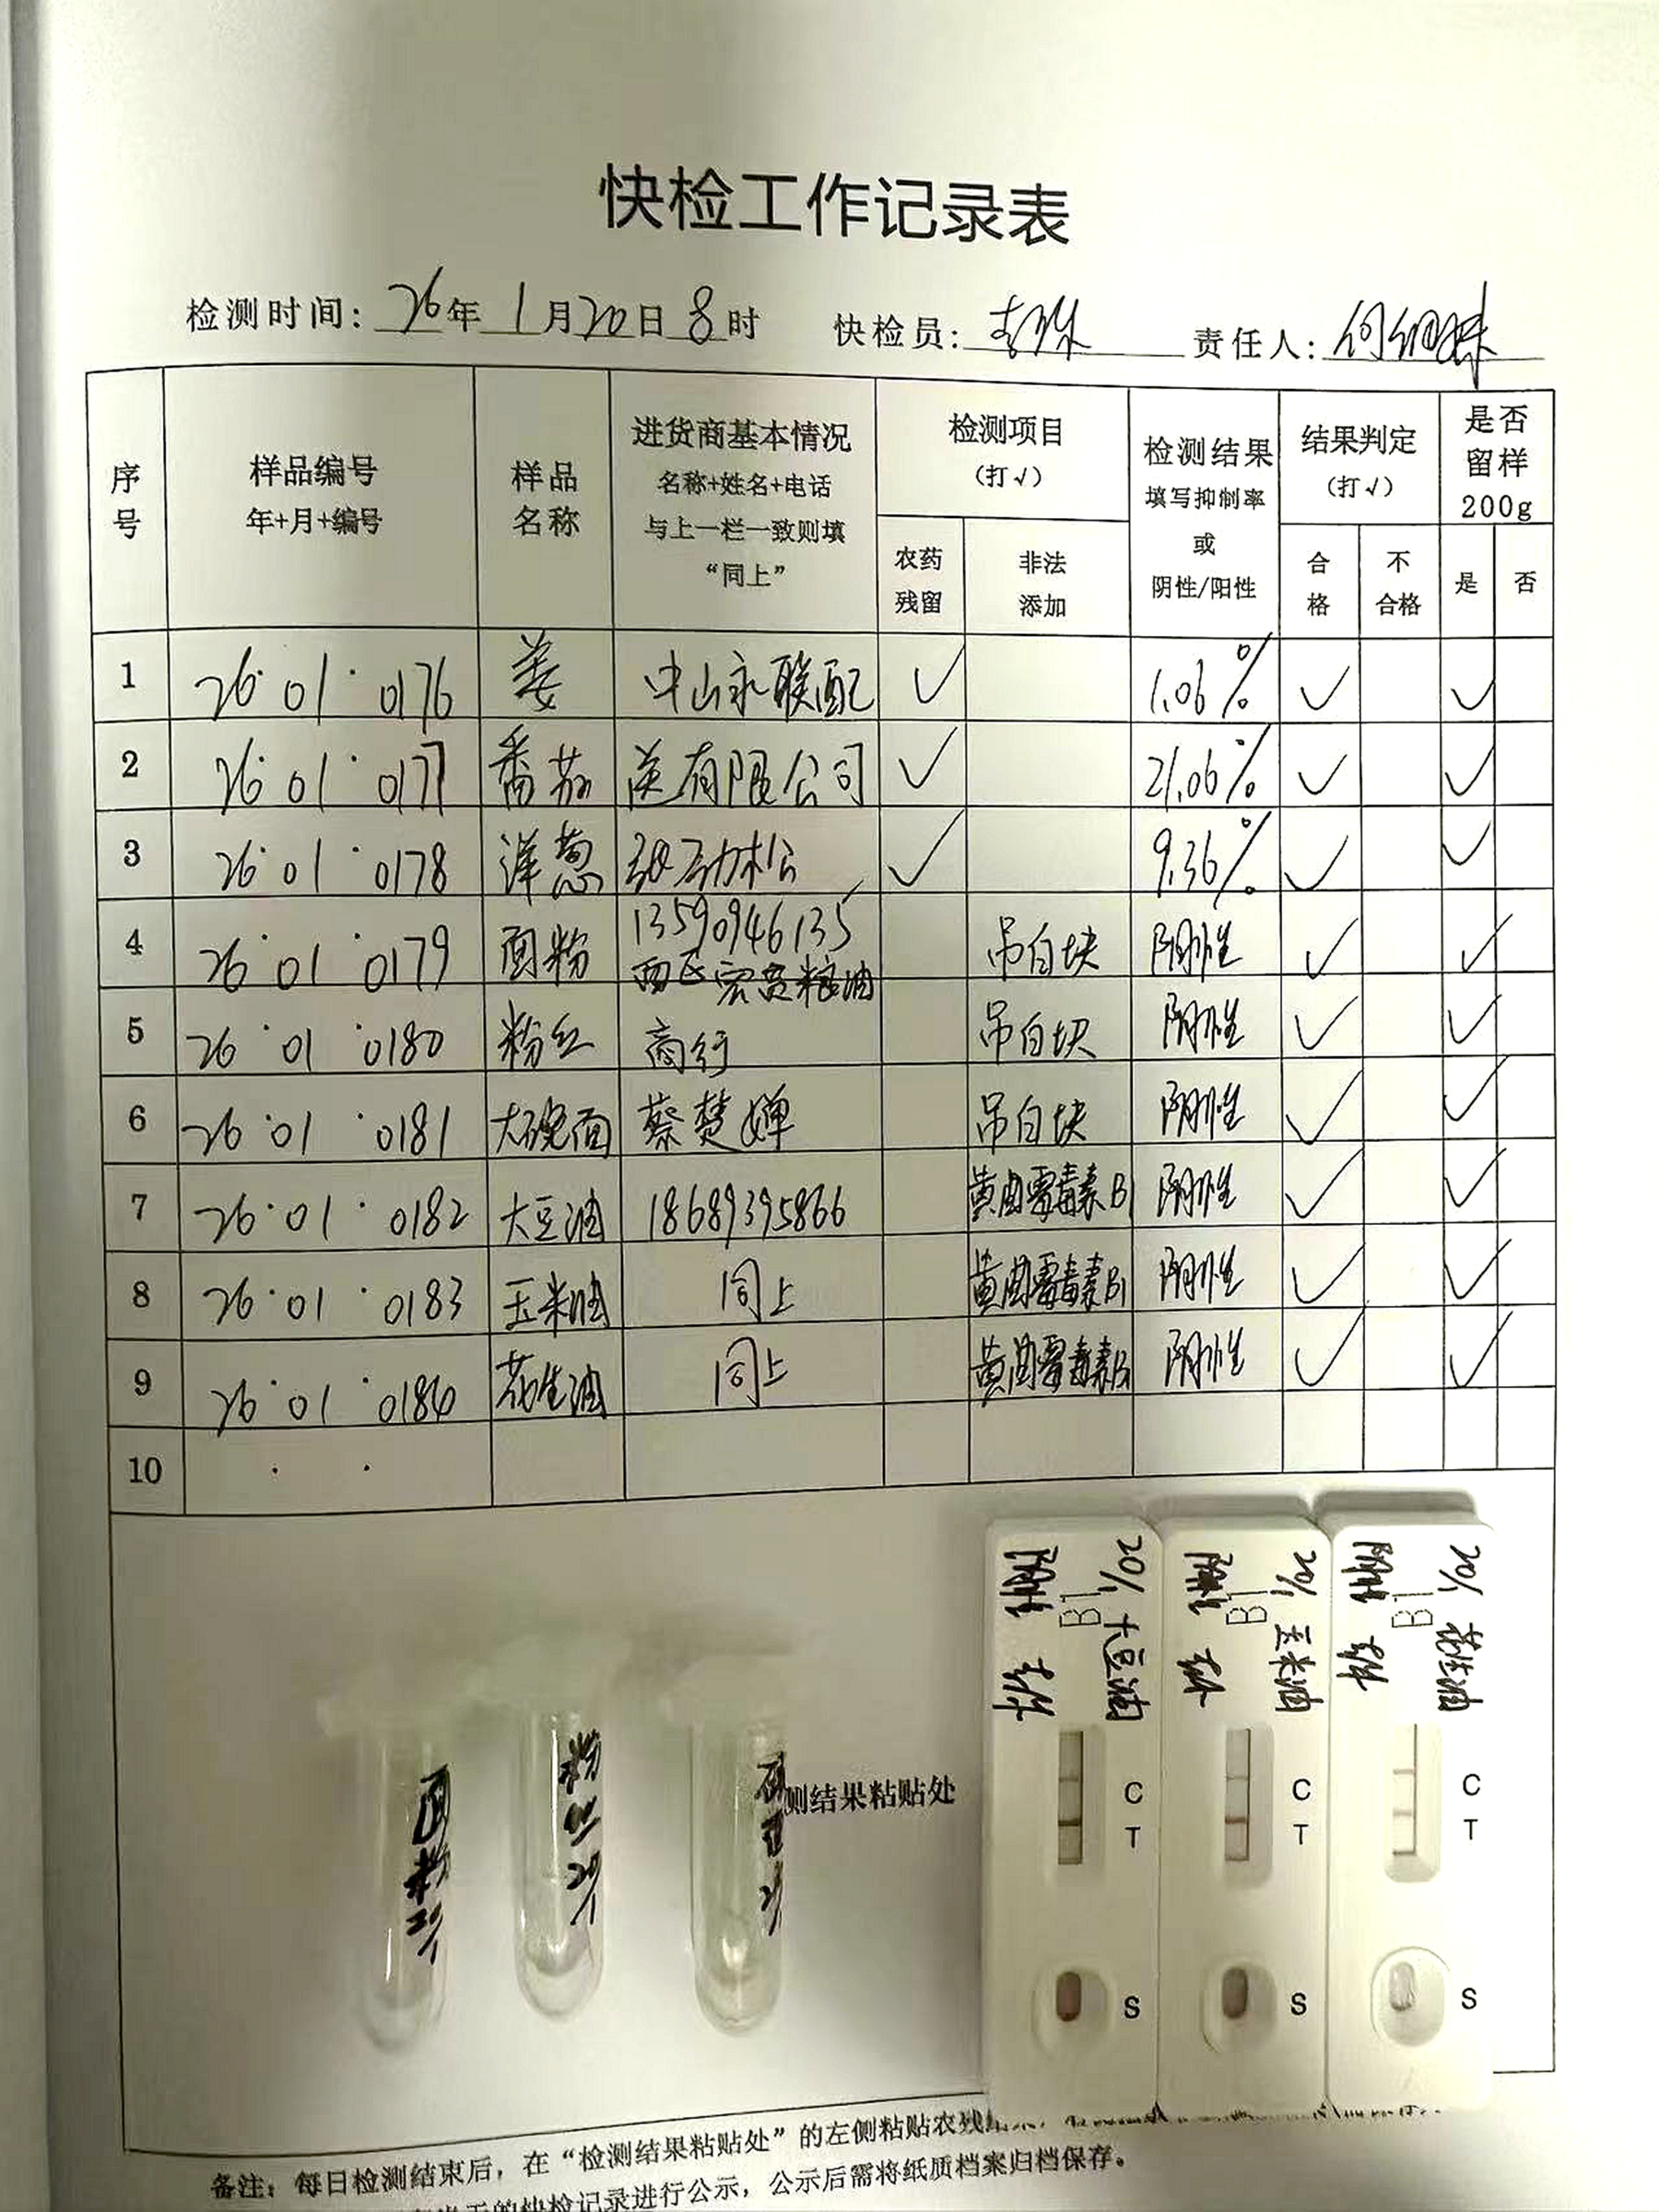 快检工作记录表
检测时间: 26年 1月20日 8时 快检员: 责任人:
序号 样品编号 年+月+编号 样品名称 进货商基本情况 名称+姓名+电话 与上一栏一致则填“同上” 检测项目 (打√) 农药残留 非法添加 检测结果 填写抑制率或阴性/阳性 结果判定 (打√) 合格 不合格 是否留样200g 是 否
1 26·01·0176 姜 中山永联配 √ 1.06% √ √
2 26·01·0177 番茄 送有限公司 √ 21.06% √ √
3 26·01·0178 洋葱 √ 9.36% √ √
4 26·01·0179 面粉 13590946135 吊白块 阴性 √ √
西区宏贡粮油
5 26·01·0180 粉丝 商行 吊白块 阴性 √ √
6 26·01·0181 大碗面 蔡楚婵 吊白块 阴性 √ √
7 26·01·0182 大豆油 18689395866 黄曲霉毒素B1 阴性 √ √
8 26·01·0183 玉米油 同上 黄曲霉毒素B1 阴性 √ √
9 26·01·0184 花生油 同上 黄曲霉毒素B1 阴性 √ √
10 · ·
测结果粘贴处
面粉20/1
粉丝20/1
20/1 大豆油
B1
阴性
C
T
S
20/1 玉米油
B1
阴性
C
T
S
20/1 花生油
B1
阴性
C
T
S
备注: 每日检测结束后，在“检测结果粘贴处”的左侧粘贴农残
的快检记录进行公示，公示后需将纸质档案归档保存。